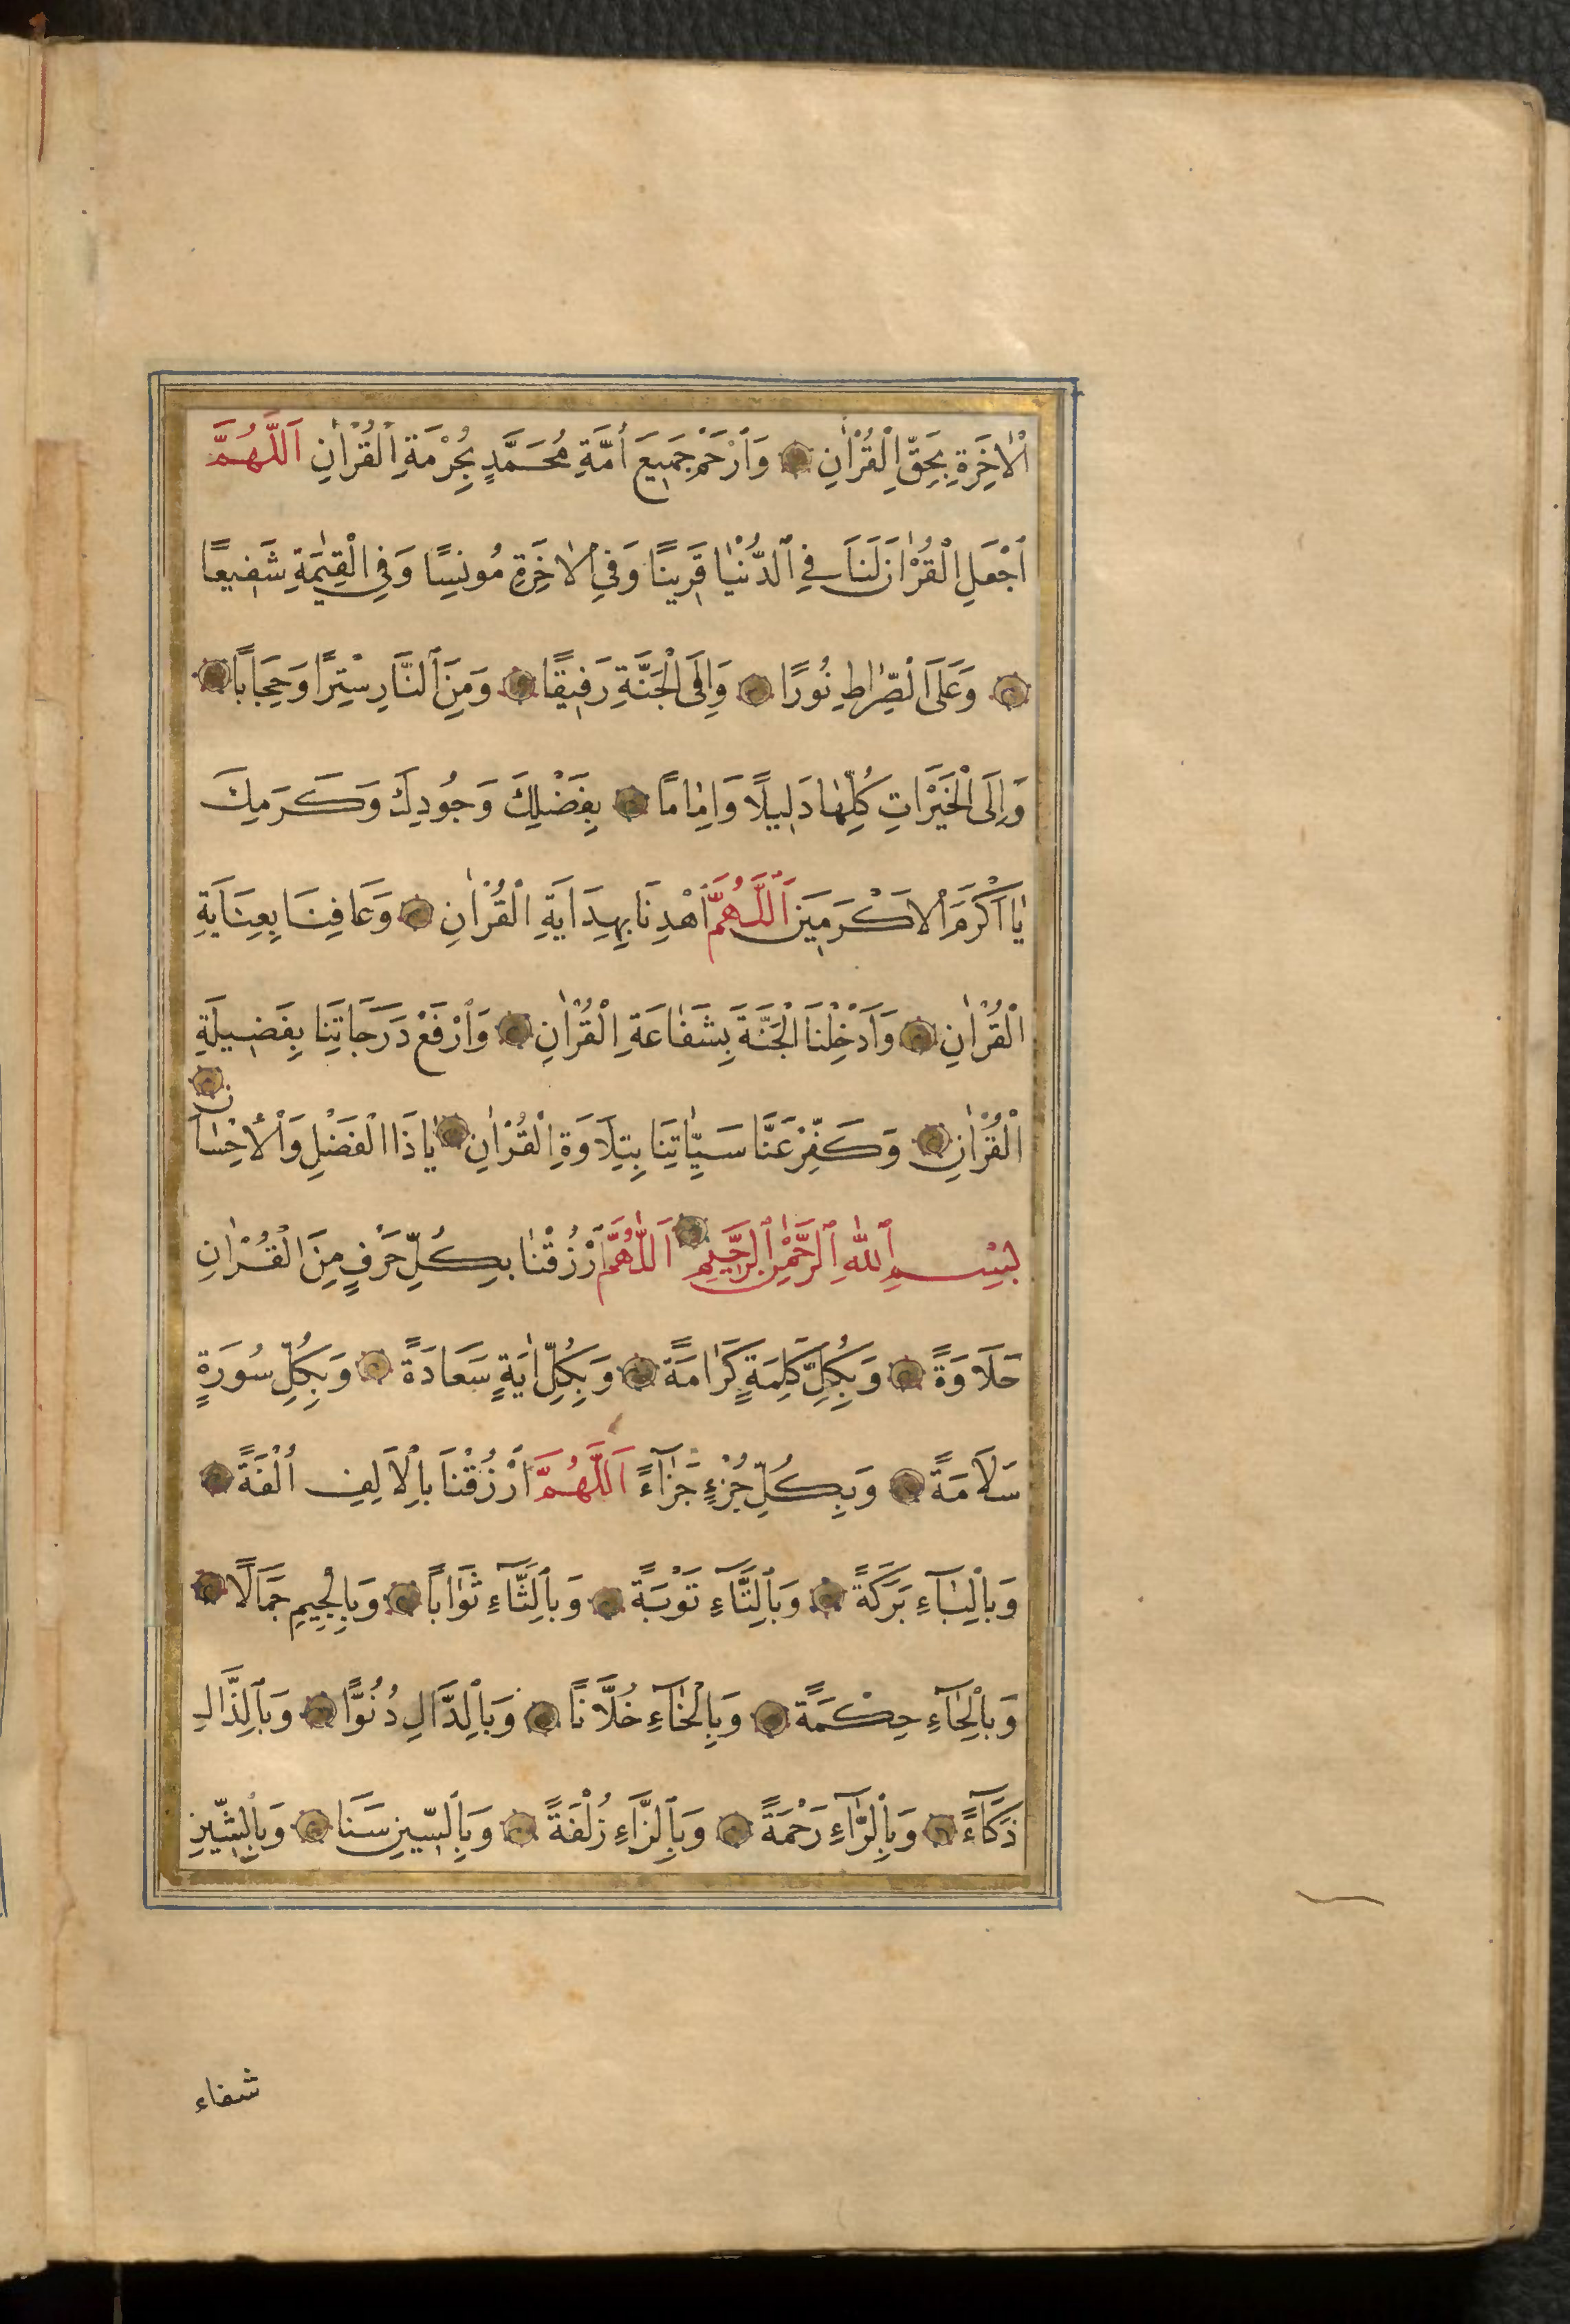 اْلاٰخِرَةِ بِحَقِّ الْقُرْاٰنِ وَارْحَمْ جَمِيعَ اُمَّةِ مُحَمَّدٍ بِحُرْمَةِ الْقُرْاٰنِ اَللّٰهُمَّ
اجْعَلِ الْقُرْاٰنَ لَنَا فِي الدُّنْيَا قَرِينًا وَفِي اْلاٰخِرَةِ مُونِسًا وَفِي الْقِيٰمَةِ شَفِيعًا
وَعَلَى الصِّرَاطِ نُورًا وَاِلَى الْجَنَّةِ رَفِيقًا وَمِنَ النَّارِ سِتْرًا وَحِجَابًا
وَاِلَى الْخَيْرَاتِ كُلِّهَا دَلِيلًا وَاِمَامًا بِفَضْلِكَ وَجُودِكَ وَكَرَمِكَ
يَا اَكْرَمَ اْلاَكْرَمِينَ اَللّٰهُمَّ اهْدِنَا بِهِدَايَةِ الْقُرْاٰنِ وَعَافِنَا بِعِنَايَةِ
الْقُرْاٰنِ وَاَدْخِلْنَا الْجَنَّةَ بِشَفَاعَةِ الْقُرْاٰنِ وَارْفَعْ دَرَجَاتِنَا بِفَضِيلَةِ
الْقُرْاٰنِ وَكَفِّرْ عَنَّا سَيِّاٰتِنَا بِتِلَاوَةِ الْقُرْاٰنِ يَا ذَا الْفَضْلِ وَاْلاِحْسَانِ
بِسْمِ اللّٰهِ الرَّحْمٰنِ الرَّحِيمِ اَللّٰهُمَّ ارْزُقْنَا بِكُلِّ حَرْفٍ مِنَ الْقُرْاٰنِ
حَلَاوَةً وَبِكُلِّ كَلِمَةٍ كَرَامَةً وَبِكُلِّ اٰيَةٍ سَعَادَةً وَبِكُلِّ سُورَةٍ
سَلَامَةً وَبِكُلِّ جُزْءٍ جَزَآءً اَللّٰهُمَّ ارْزُقْنَا بِاْلاَلِفِ اُلْفَةً
وَبِالْبَآءِ بَرَكَةً وَبِالتَّآءِ تَوْبَةً وَبِالثَّآءِ ثَوَابًا وَبِالْجِيمِ جَمَالًا
وَبِالْحَآءِ حِكْمَةً وَبِالْخَآءِ خُلَّانًا وَبِالدَّالِ دُنُوًّا وَبِالذَّالِ
ذَكَآءً وَبِالرَّآءِ رَحْمَةً وَبِالزَّاءِ زُلْفَةً وَبِالسِّينِ سَنَا وَبِالشِّينِ
شفاء